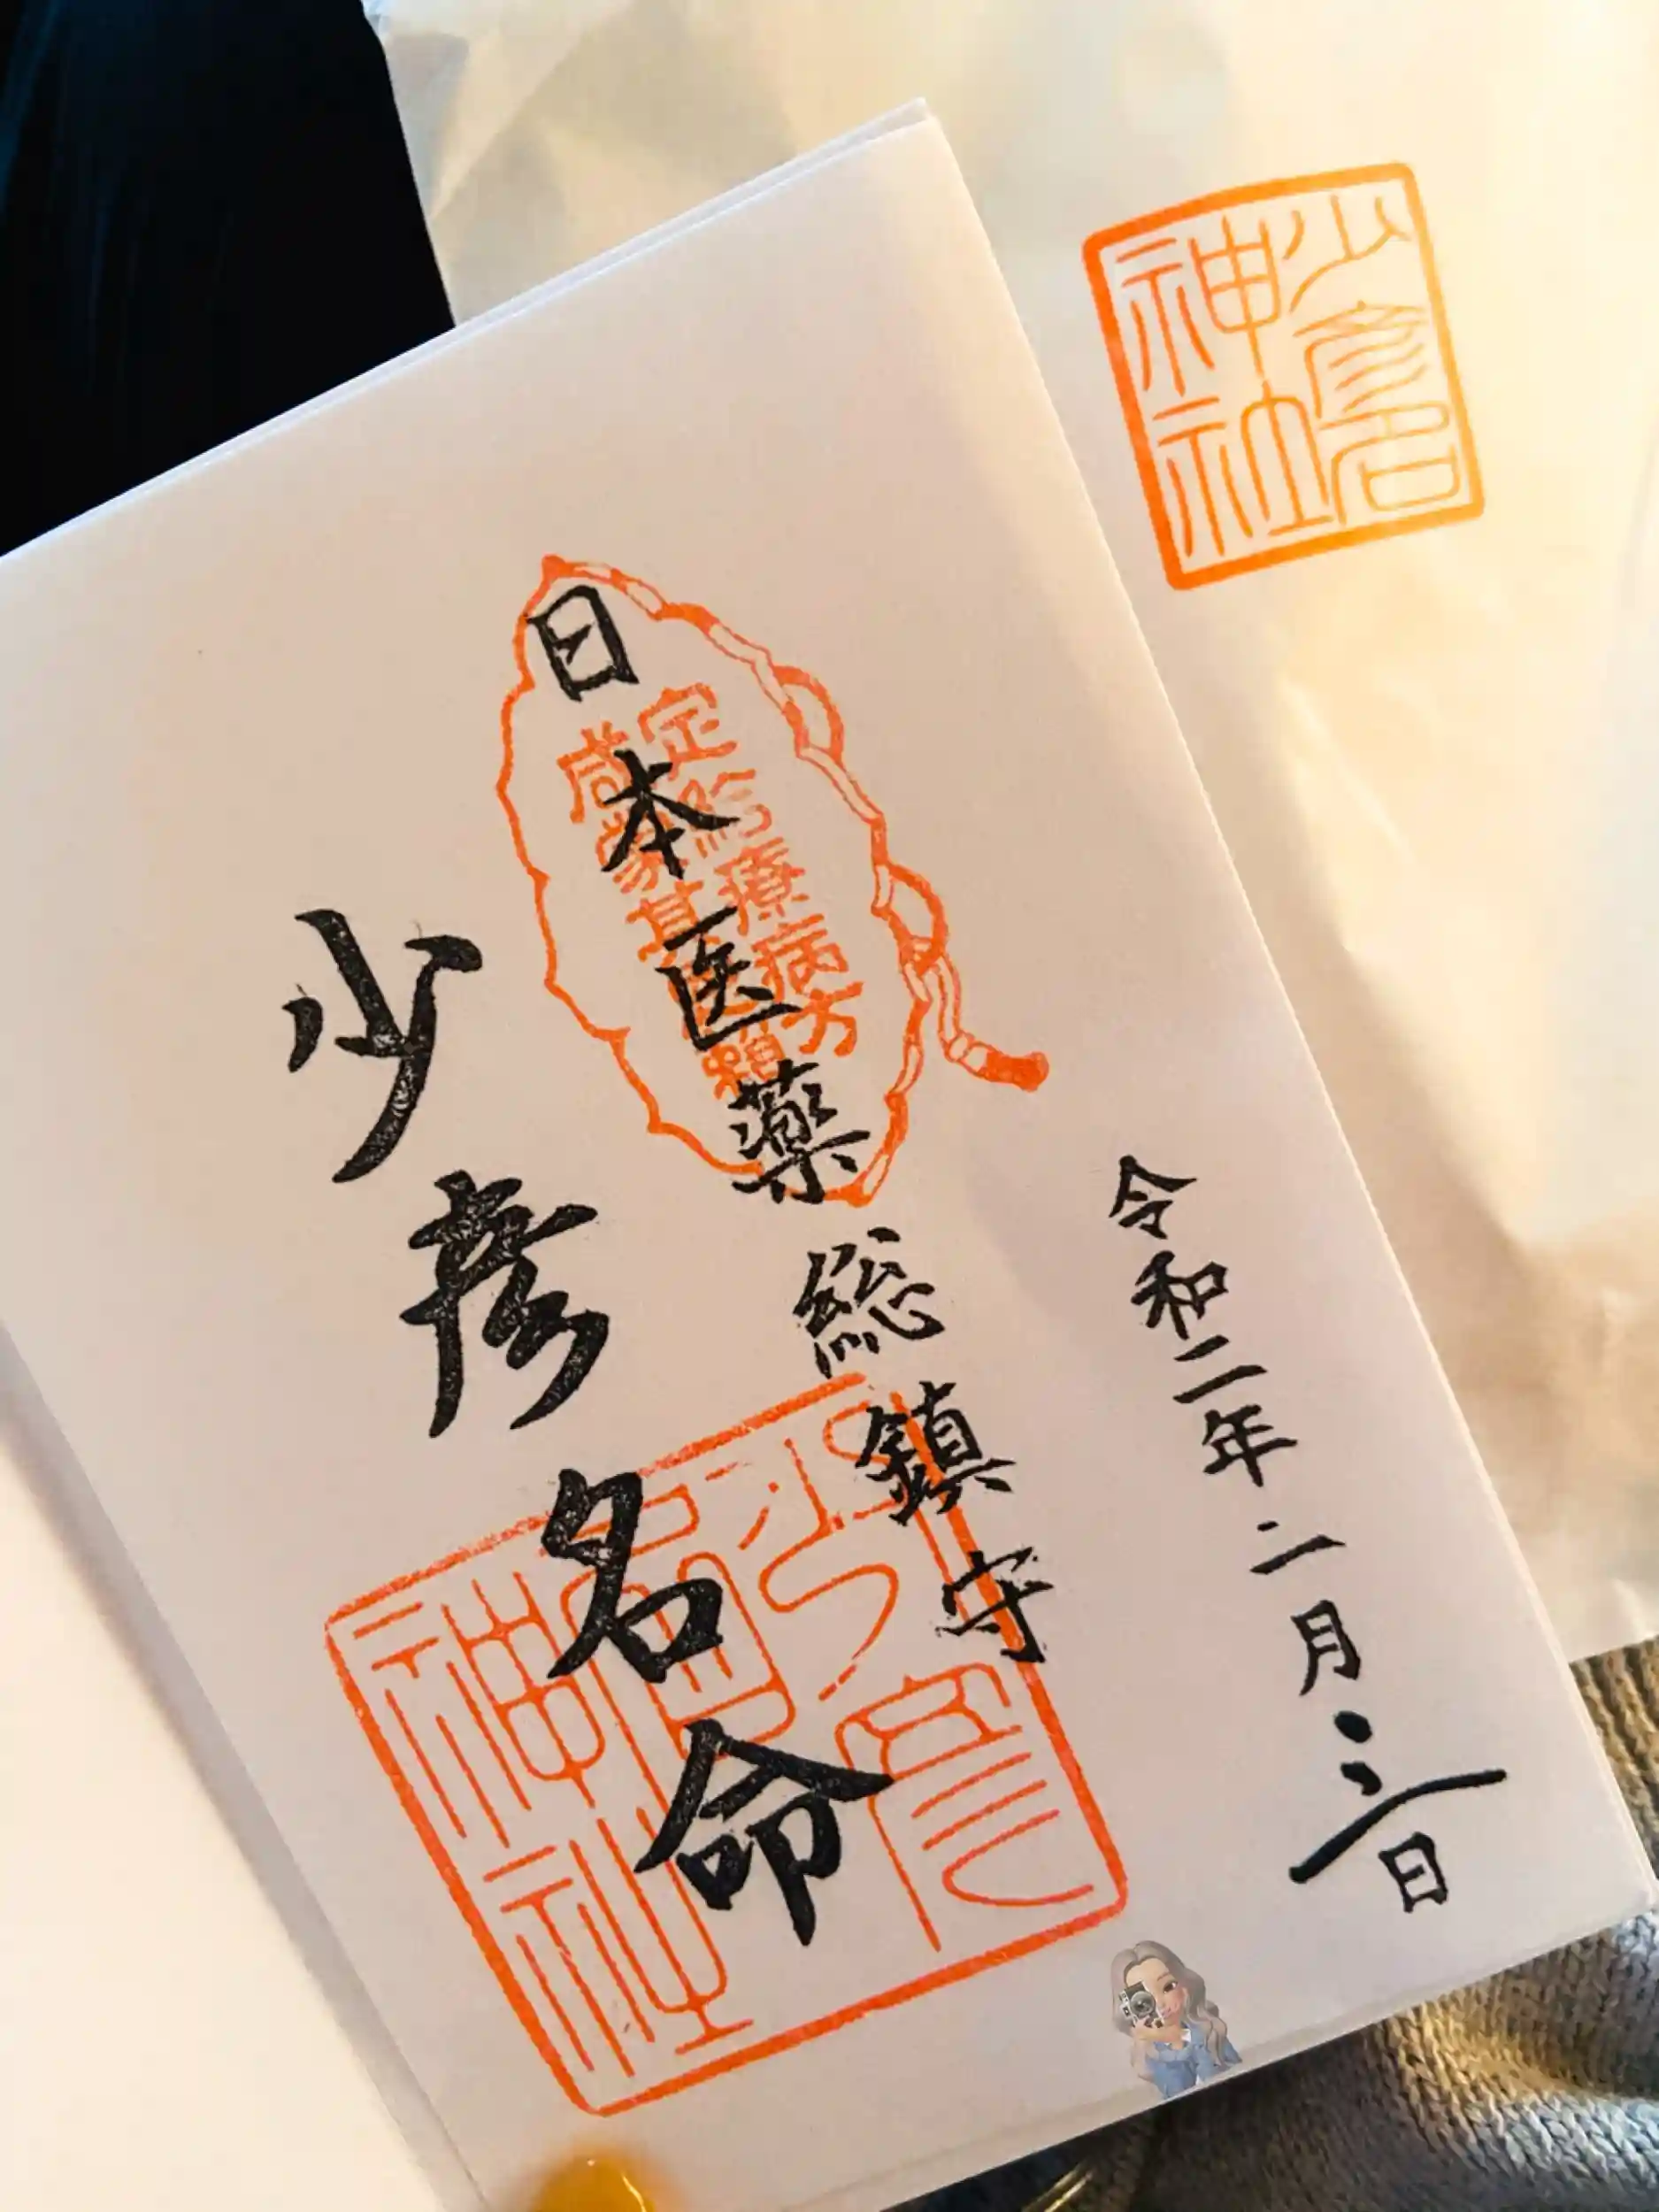 少彦名
神社
令和二年二月三日
日本医薬総鎮守
少彦名命
定療病方
咸蒙其頼
神社